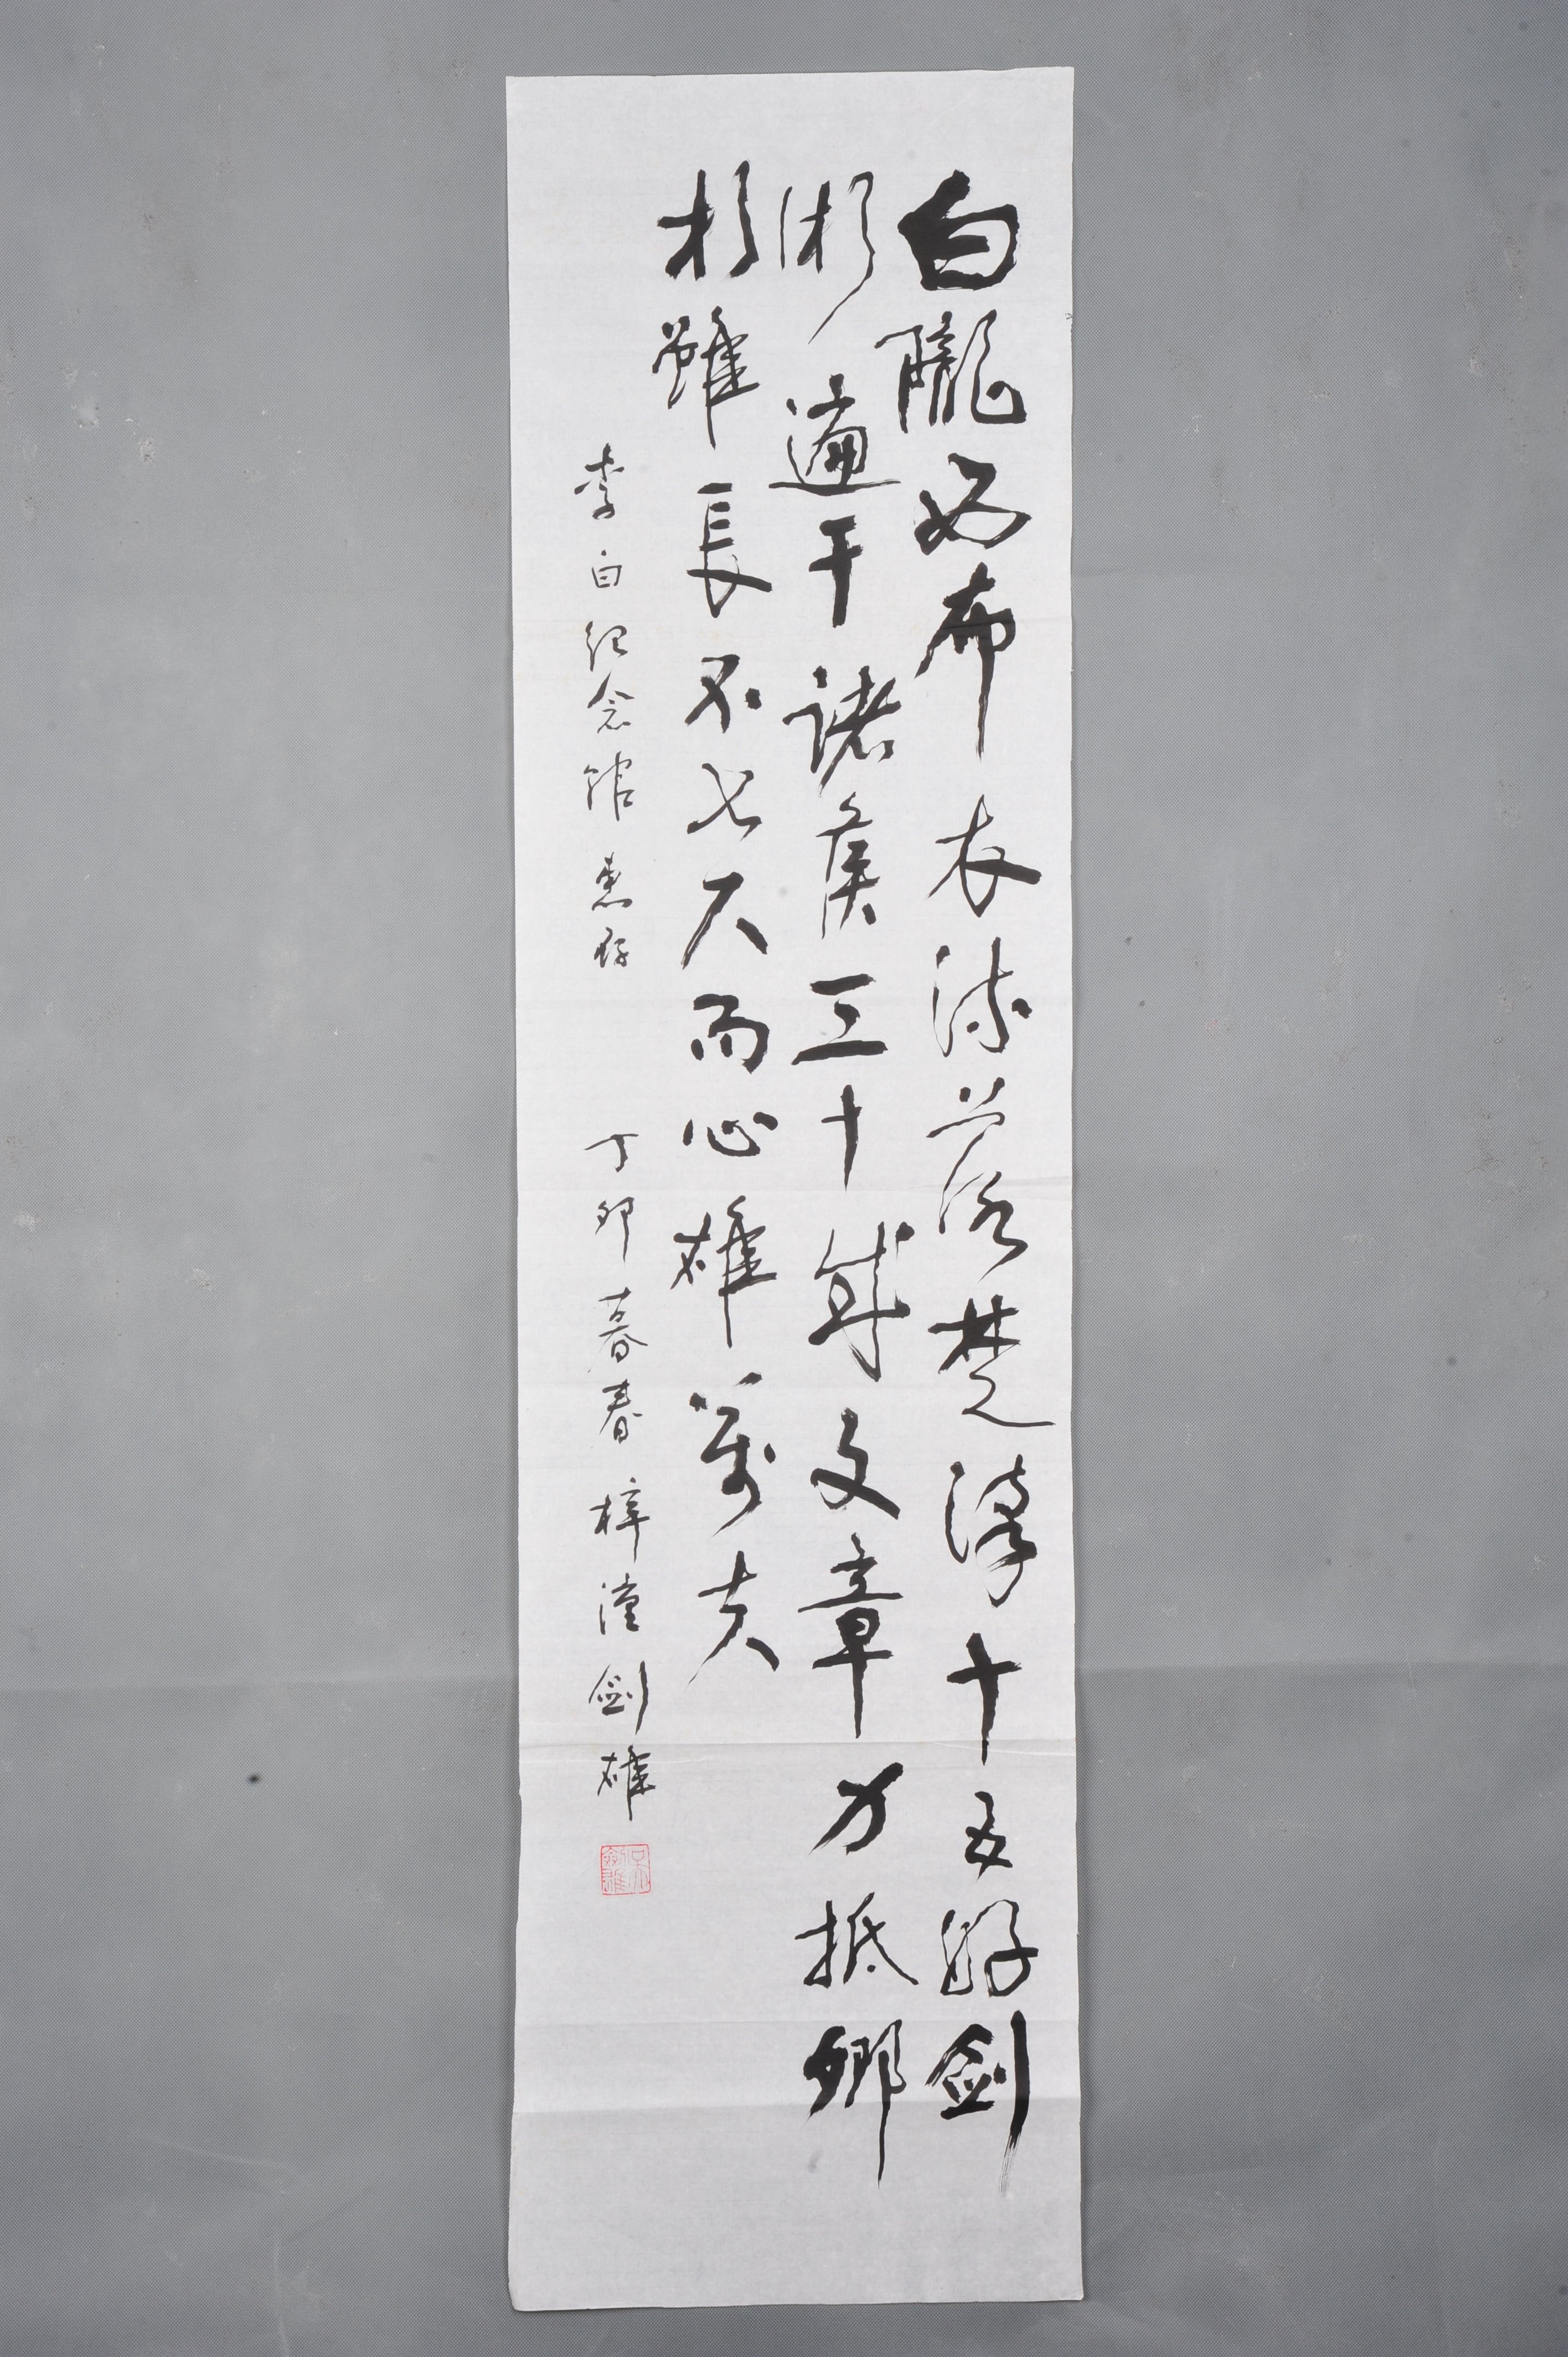 白隴西布衣流落楚漢十五好剑
術遍干諸侯三十成文章力抵卿
相雖長不七尺而心雄萬夫
李白纪念馆惠存 丁卯暮春 梓潼剑雄
吳劍雄